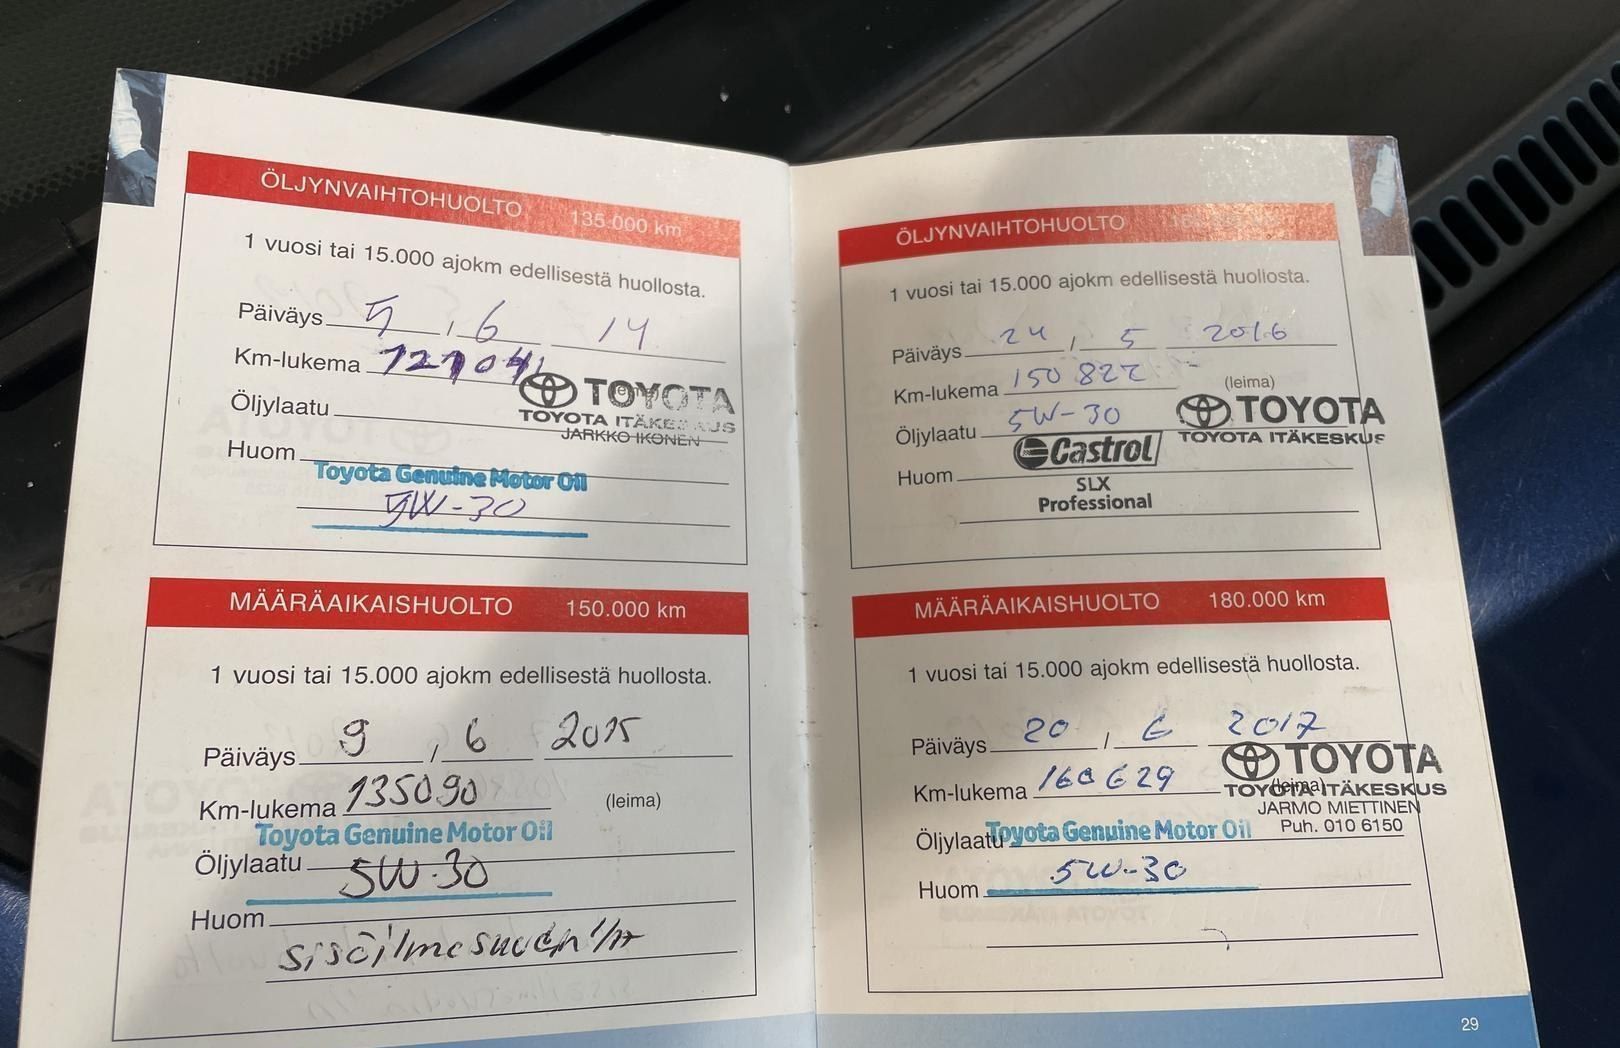 ÖLJYNVAIHTOHUOLTO 135.000 km
1 vuosi tai 15.000 ajokm edellisestä huollosta.
Päiväys 5 , 6 14
Km-lukema
TOYOTA
TOYOTA ITÄKESKUS
JARKKO IKONEN
Öljylaatu
Huom
Toyota Genuine Motor Oil
5W-30
MÄÄRÄAIKAISHUOLTO 150.000 km
1 vuosi tai 15.000 ajokm edellisestä huollosta.
Päiväys 9 , 6 2015
Km-lukema 135090 (leima)
Toyota Genuine Motor Oil
Öljylaatu 5W-30
Huom
ÖLJYNVAIHTOHUOLTO
1 vuosi tai 15.000 ajokm edellisestä huollosta.
Päiväys 24 , 5 2016
Km-lukema 150 822 (leima)
Öljylaatu 5W-30
TOYOTA
TOYOTA ITÄKESKUS
Huom
Castrol
SLX
Professional
MÄÄRÄAIKAISHUOLTO 180.000 km
1 vuosi tai 15.000 ajokm edellisestä huollosta.
Päiväys 20 , 6 2017
TOYOTA
Km-lukema 160629 (leima)
TOYOTA ITÄKESKUS
JARMO MIETTINEN
Puh. 010 6150
Öljylaatu Toyota Genuine Motor Oil
5W-30
Huom
29